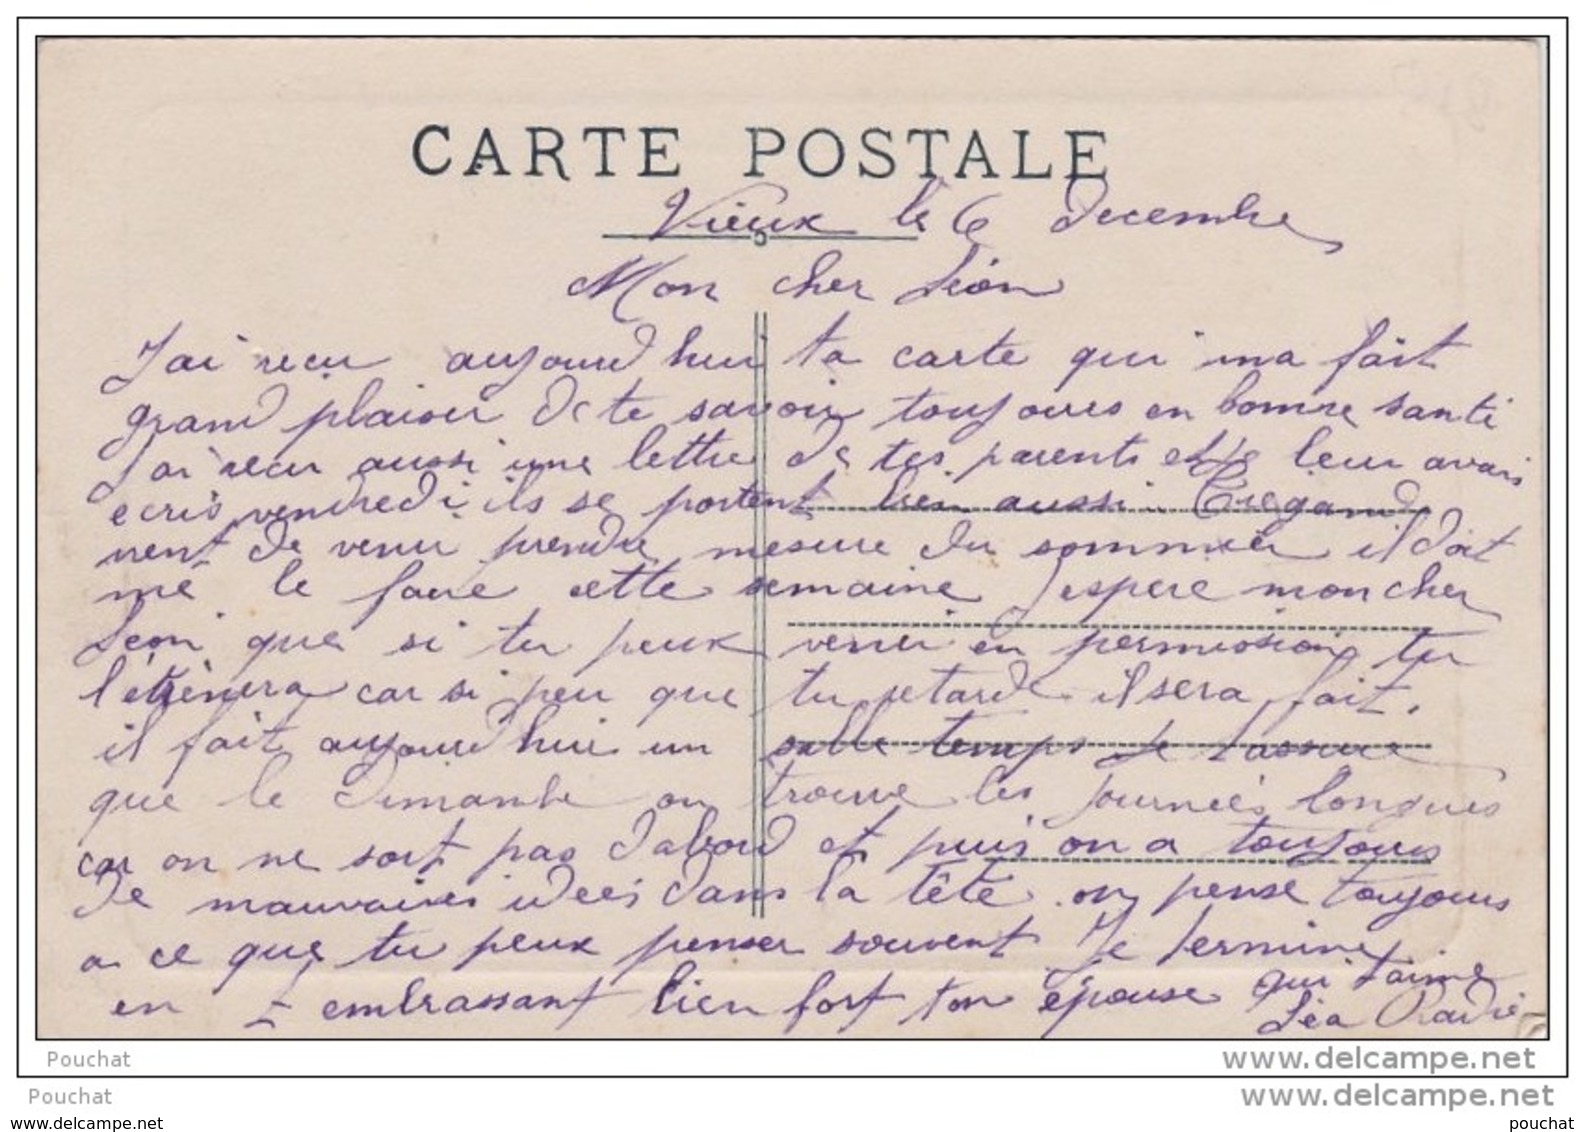 CARTE POSTALE
Vieux le 6 decembre
Mon cher Léon
J'ai recu aujourd hui ta carte qui ma fait
grand plaisir de te savoir toujours en bonne santé
J ai recu aussi une lettre de tes parents et je leur avais
ecris vendredi ils se portent bien aussi
vient de venir prendre mesure du sommier il doit
me le faire cette semaine Jespere mon cher
Leon que si tu peux venir en permission tu
l'étrènera car si peu que tu retarde il sera fait.
il fait aujourd hui un salle temps Je tassure
que le dimanche on trouve les journées longues
car on ne sort pas dabord et puis on a toujours
de mauvaises idées dans la tête on pense toujours
a ce que tu peux penser souvent Je termine
en t embrassant bien fort ton épouse qui taime
Léa
Pouchat
www.delcampe.net
Pouchat
www.delcampe.net
www.delcampe.net
pouchat